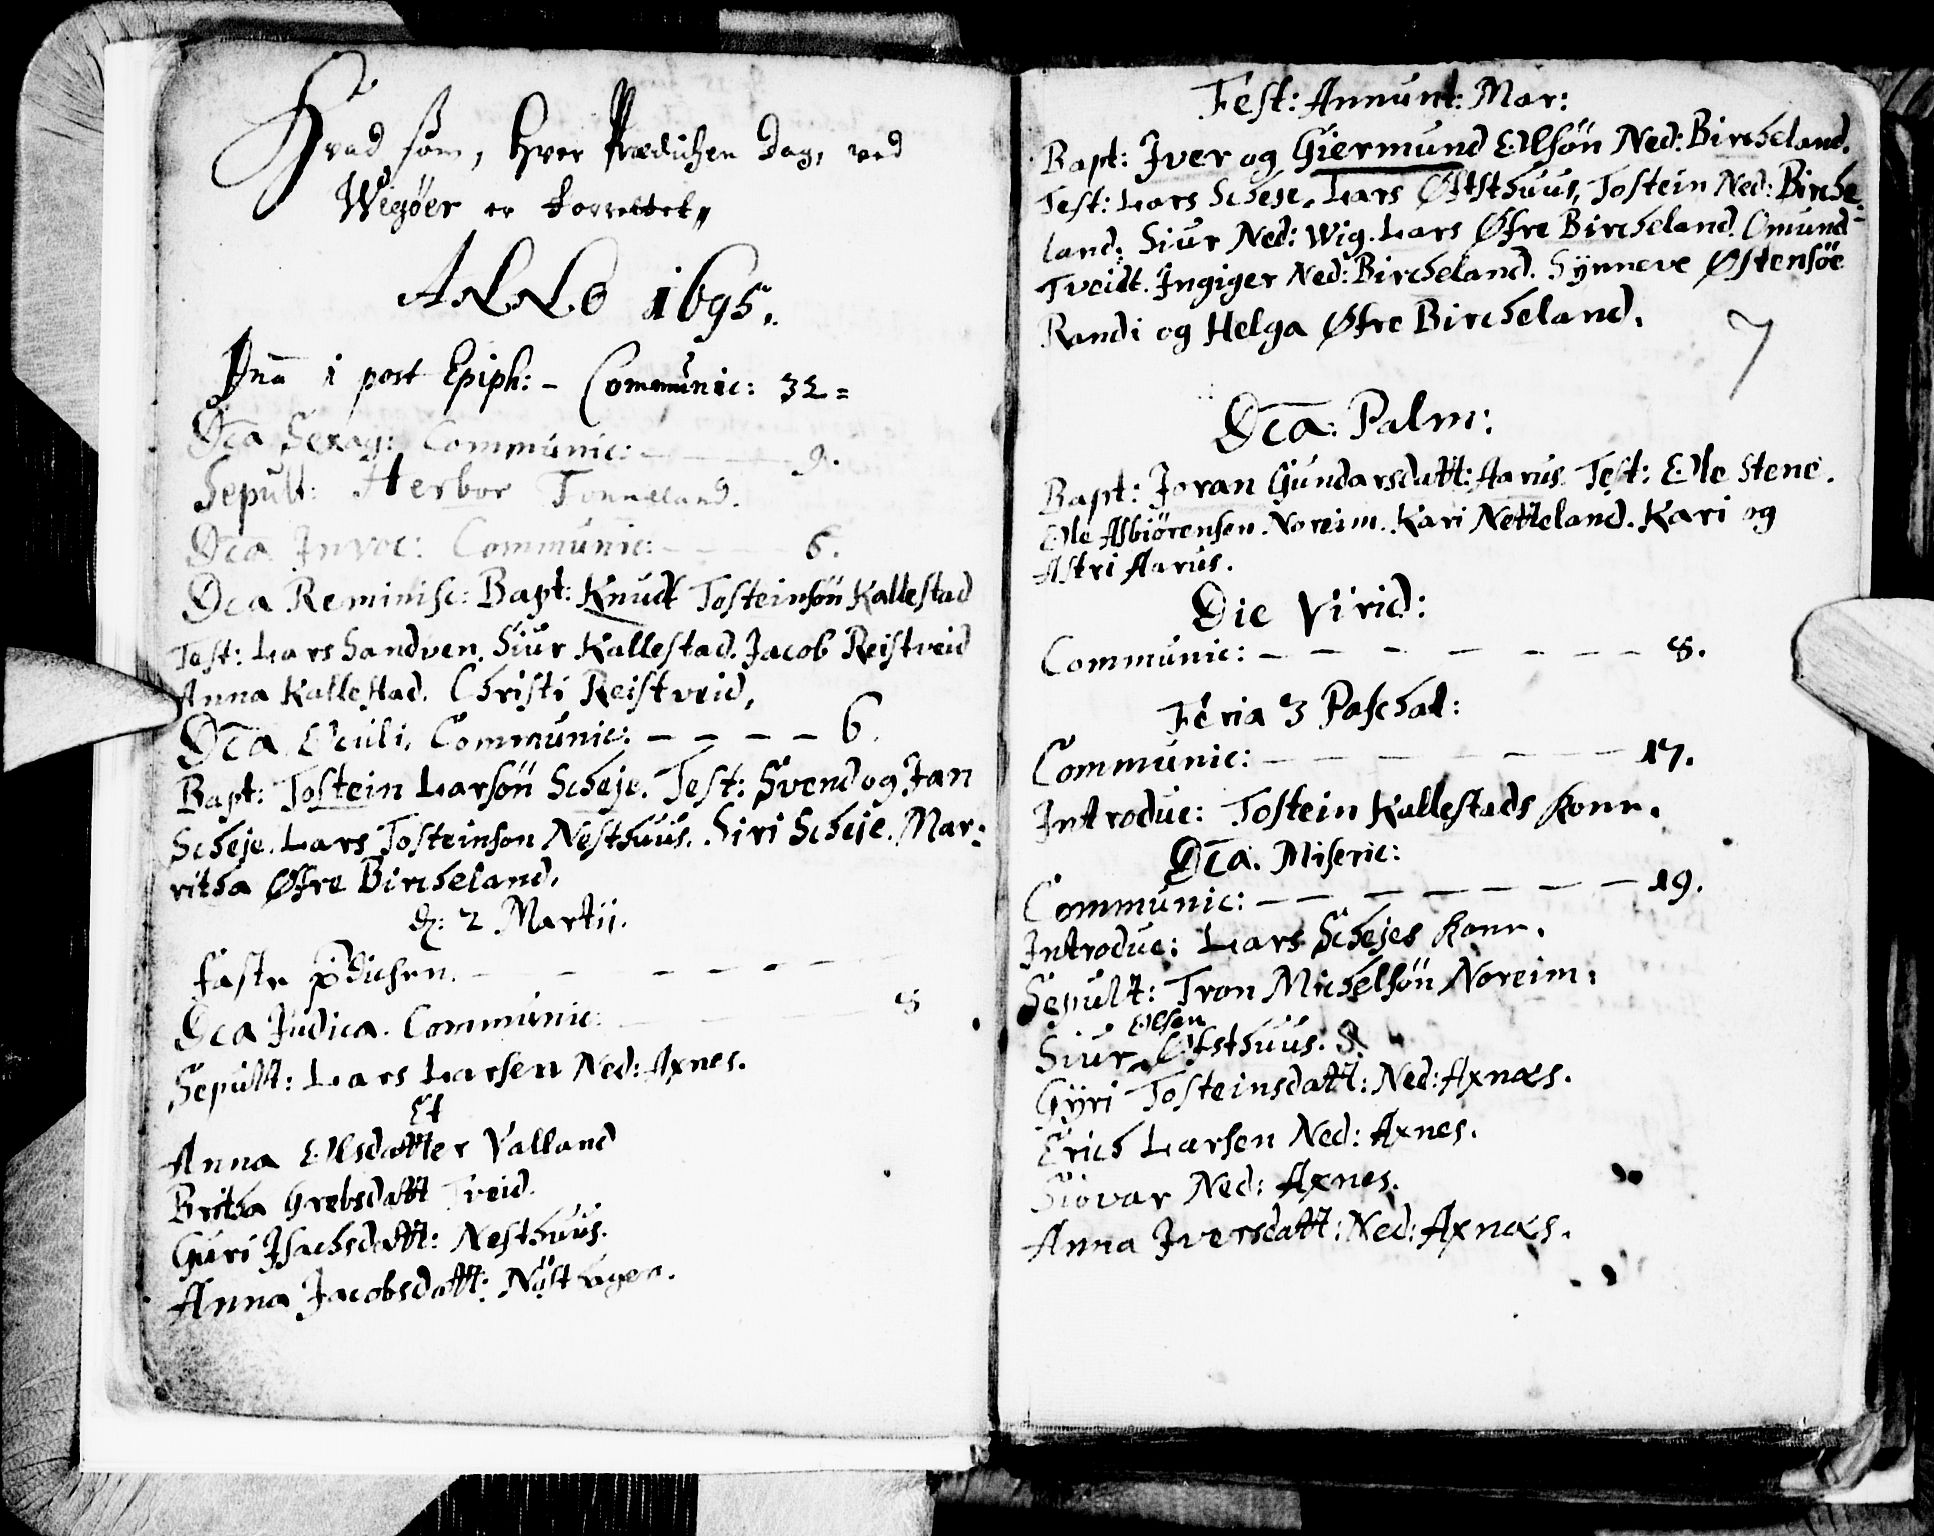 Hvad som, hver Prædichen dag, ved
Wigöer er forrettet„
ANNO 1695.
Dnã 1 post Epiph: - Communic: 32=
Dca Sexag: Communic: — — — 9.
Sepult: Herbor Tonneland.
Dca Invoc: Communic: — — — 6.
Dca Reminisc: Bapt: Knudt Tosteinsön Kallestad
Test: Lars Sandven. Siur Kallestad. Jacob Reistveid
Anna Kallestad. Christi Reistveid.
Dca Oculi. Communic: — — — — 6.
Bapt: Tostein Larsön Scheje. Test: Svend og Jan
Scheje. Lars Tosteinson Nesthuus. Siri Scheje. Mar-
ritha Øfre Bircheland.
d: 2 Martii.
Faste p̄dichen. — — — — — — —
Dca Judica. Communic: — — — 8
Sepult: Lars Larsen Ned: Axnes.
Et
Anna Olsdatter Valland
Britha Grebsdatt Tveid.
Guri Isachsdatt: Nesthuus.
Anna Jacobsdatt: Nöst hagen.
Fest: Annunt: Mar:
Bapt: Iver og Giermund Olsön Ned: Bircheland.
Test: Lars Scheje. Lars Øfsthuus, Tostein Ned: Birche-
land: Siur Ned: Wig. Lars Øfre Bircheland. Omund
Tveidt. Ingiger Ned: Bircheland. Synneve Østensöe
Randi og Helga Øfre Bircheland.
7
Dca. Palm:
Bapt: Joran Gundarsdatt: Aarus. Test: Ole Stene.
Ole Asbiörensen. Noreim. Kari Netteland. Kari og
Astri Aarus.
Die Virid:
Communic: — — — — — — — 8.
Feria 3 Paschat:
Communic: — — — — — — 17.
Introduc: Tostein Kallestads kone.
Dca. Miseric:
Communic: — — — — — — — 19.
Introduc: Lars Schejes kone.
Sepult: Tron Michelsön Noreim.
Olsen
Siur Øfsthuus. S.
Gyri Tosteinsdatt: Ned: Axnæs.
Erich Larsen Ned: Axnes.
Siovar Ned: Axnes.
Anna Iversdatt: Ned: Axnæs.